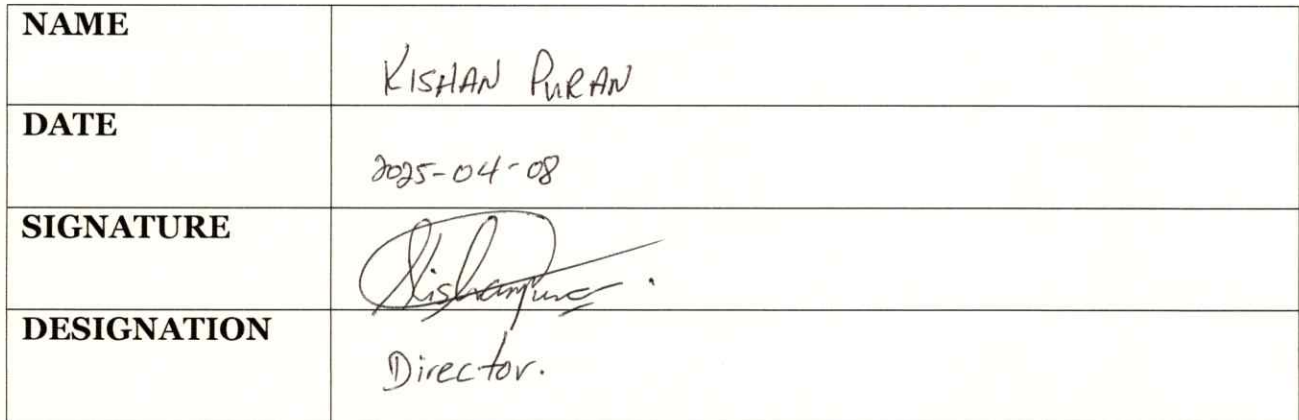 NAME
KISHAN PURAN
DATE
2025-04-08
SIGNATURE
Kishan Puran
DESIGNATION
Director.